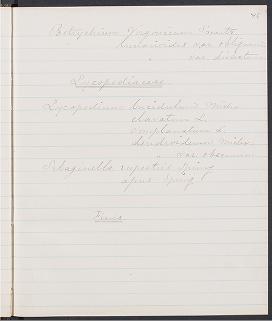 45
Botrychium Virginicum Swartz
lunarioides var obliquum
" var dissectum
Lycopodiaceae
Lycopodium lucidulum Michx
clavatum L.
complanatum L.
dendroideum Michx
" var obscurum
Selaginella rupestris Spring
apus Spring
Finis